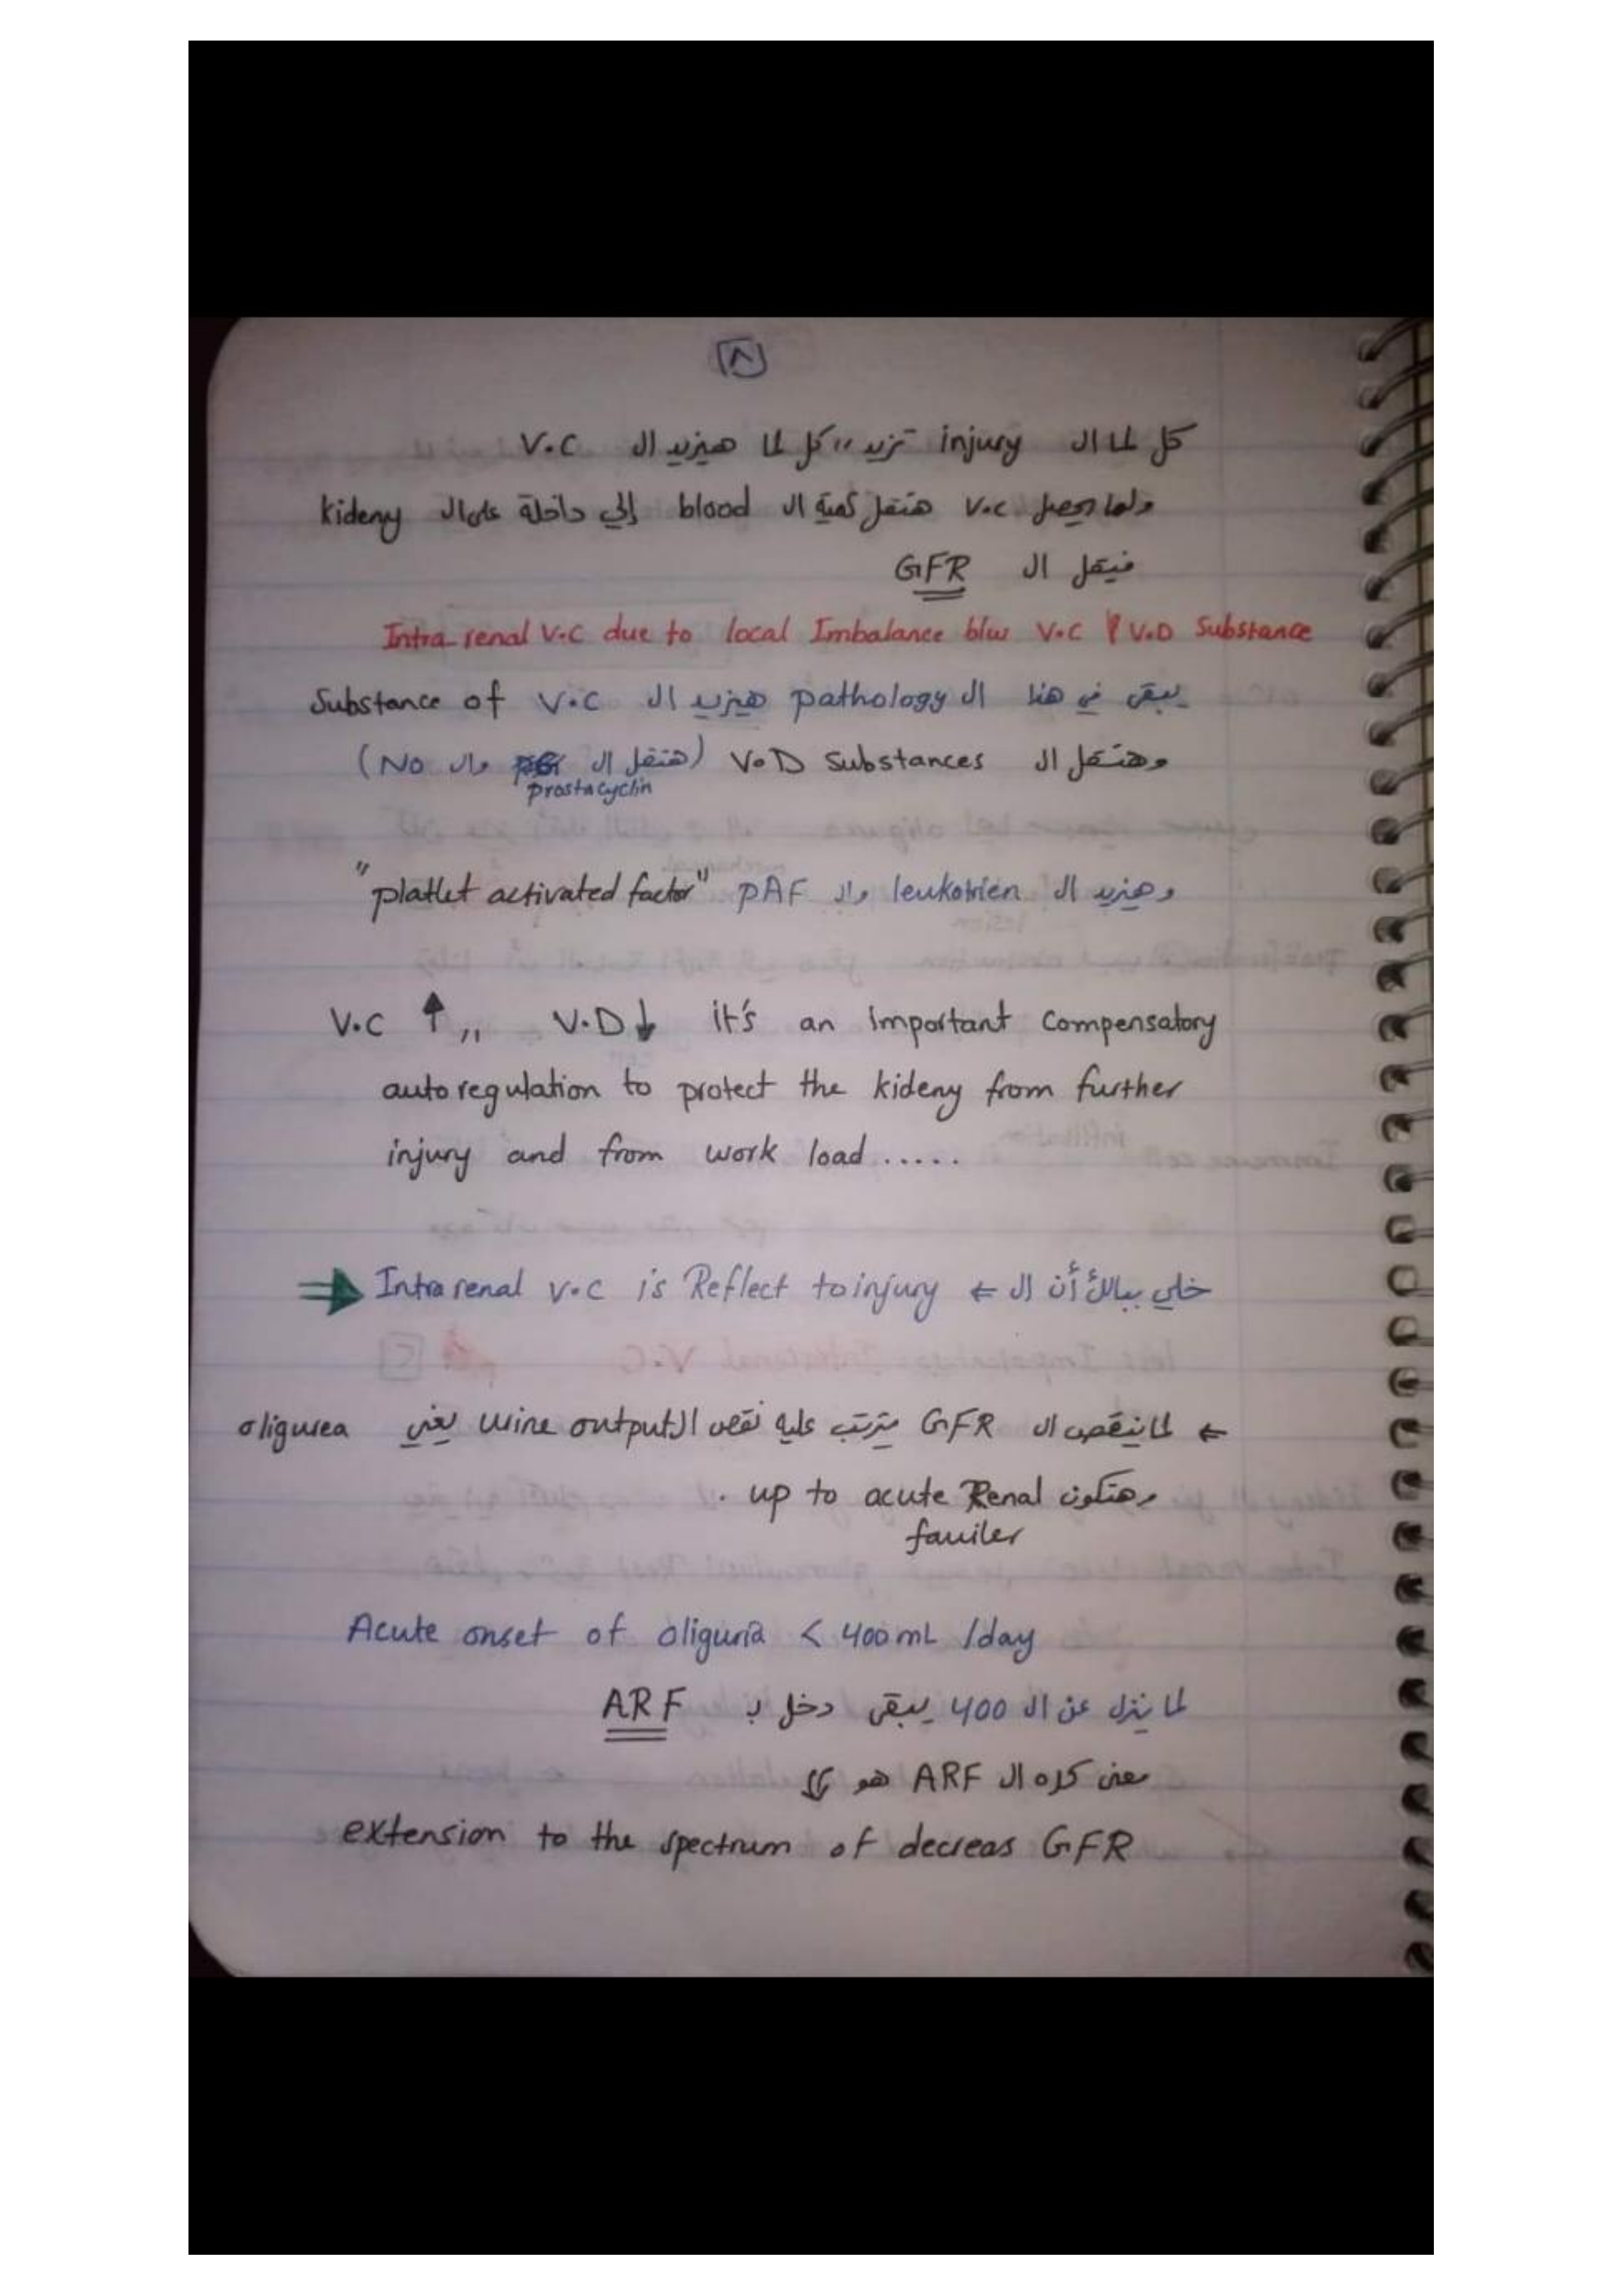 ٨
كل لما ال injury تزيد ،، كل لما هيزيد ال V.C
ولما يحصل V.C هتقل كمية ال blood إلي داخلة على ال kideny
فيقل ال GFR
Intra renal V.C due to local Imbalance b/w V.C & V.D Substance
يبقى في هنا ال pathology هيزيد ال Substance of V.C
وهتقل ال V.D Substances (هتقل ال prostacyclin وال NO)
وهيزيد ال leukotrien وال PAF "platlet activated factor"
V.C ↑ ,, V.D ↓ it's an important Compensatory
autoregulation to protect the kideny from further
injury and from work load .....
خلي ببالك أن ال ← Intra renal V.C is Reflect to injury ⇒
← لما ينقص ال GFR يترتب عليه نقص ال urine output يعني oligurea
وهتكون up to acute Renal fauiler .
Acute onset of oliguria < 400 mL /day
لما ينزل عن ال 400 يبقى دخل ب ARF
معنى كده ال ARF هو
extension to the spectrum of decreas GFR